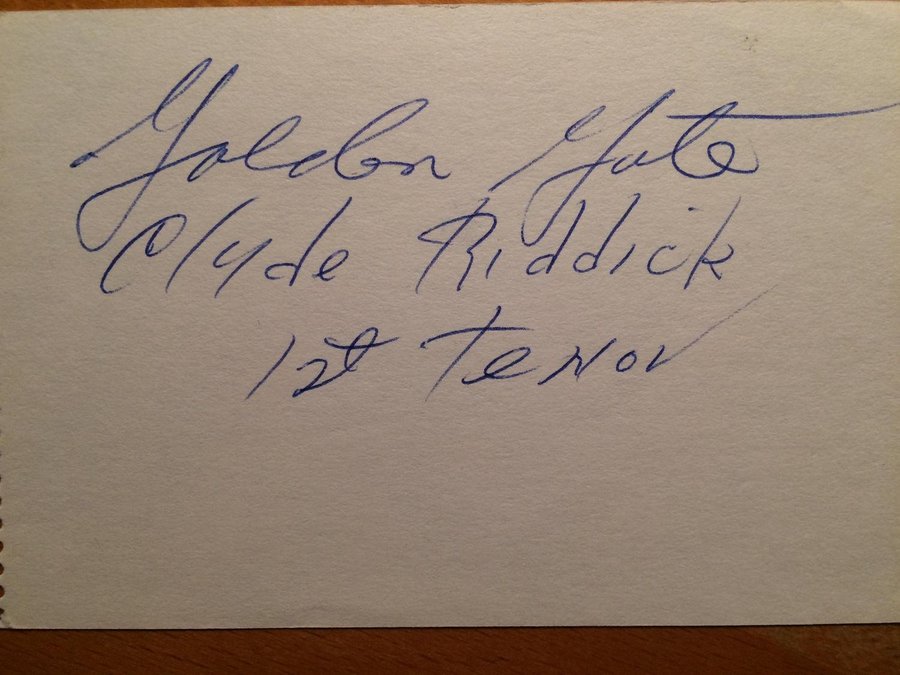 Golden Gate
Clyde Riddick
1st Tenor